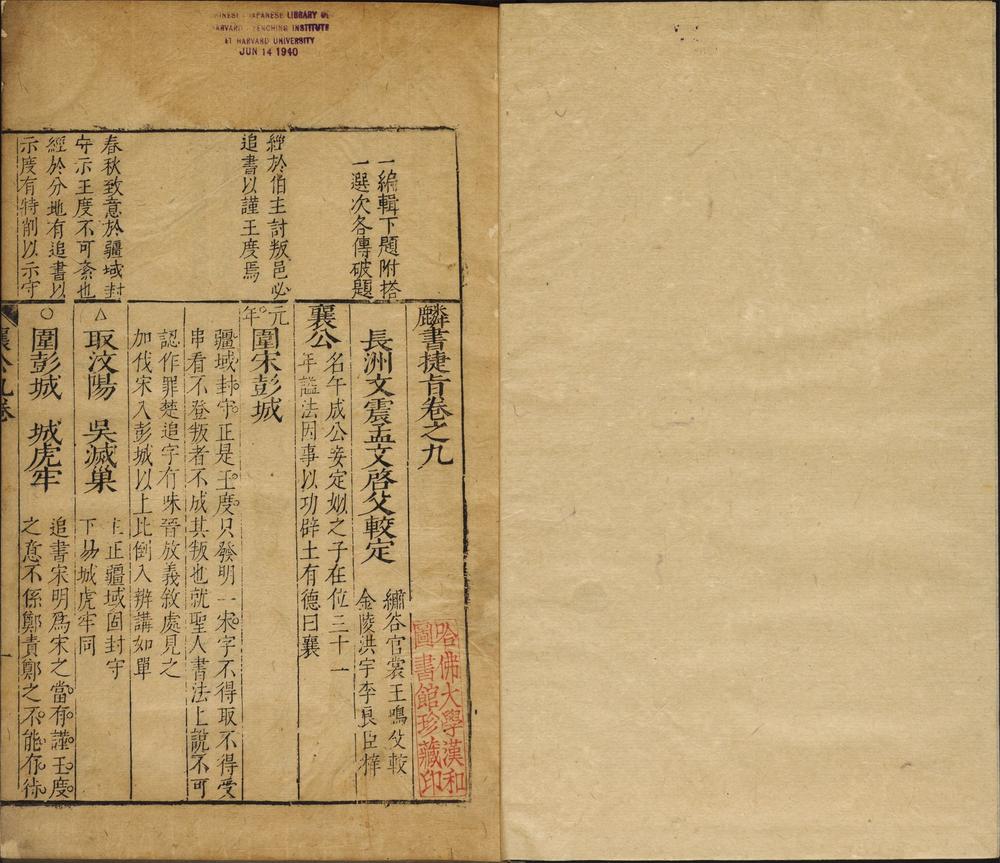 CHINESE JAPANESE LIBRARY OF
HARVARD YENCHING INSTITUTE
AT HARVARD UNIVERSITY
JUN 14 1940
一編輯下題附搭
一選次各傳破題
經於伯主討叛邑必
追書以謹王度焉
春秋致意於疆域封
守示王度不可紊也
經於分地有追書以
示度有特削以示守
麟書捷旨卷之九
長洲文震孟文啓父較定
繡谷官裳王鳴父較
金陵洪宇李良臣梓
襄公
名午成公妾定姒之子在位三十一
年謚法因事以功辟土有德曰襄
元年
圍宋彭城
疆域封守正是王度只發明一宋字不得取不得受
串看不登叛者不成其叛也就聖人書法上說不可
認作罪楚追字有味晉放義敘處見之
加伐宋入彭城以上比倒入辨講如單
△取汶陽 吳滅巢
主正疆域固封守
下易城虎牢同
○圍彭城 城虎牢
追書宋明爲宋之當有謹王度
之意不係鄭責鄭之不能有待
襄公九卷
一
哈佛大學漢和
圖書館珍藏印